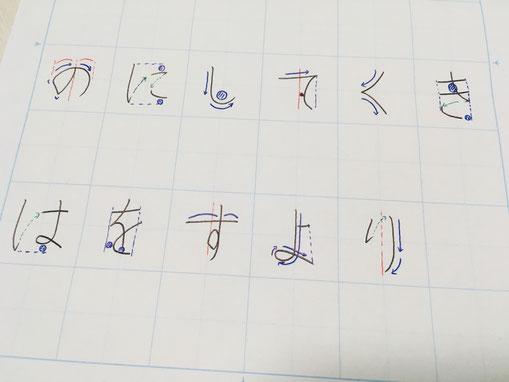 のにしてくき
はをすより